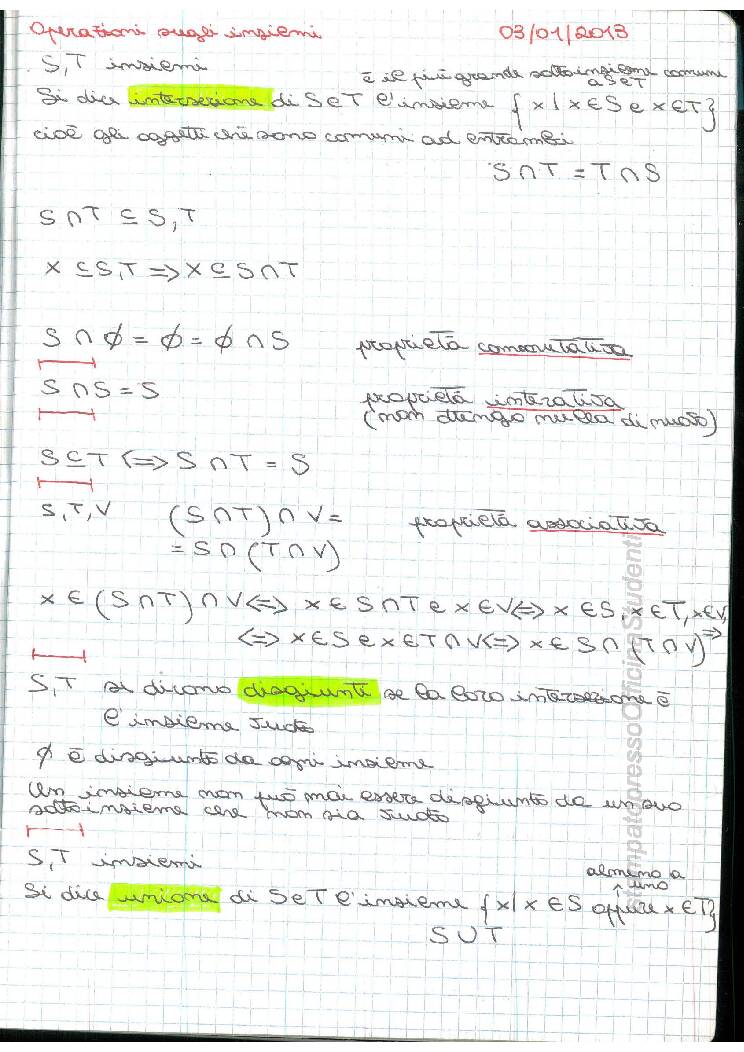 Operazioni sugli insiemi 03/01/2013
S,T insiemi
è il più grande sottoinsieme comune
a S e T
Si dice intersezione di S e T l'insieme {x | x ∈ S e x ∈ T}
cioè gli oggetti che sono comuni ad entrambi
S ∩ T = T ∩ S
S ∩ T ⊆ S,T
X ⊆ S,T => X ⊆ S ∩ T
S ∩ ∅ = ∅ = ∅ ∩ S proprietà commutativa
S ∩ S = S proprietà interativa
(non ottengo nulla di nuovo)
S ⊆ T <=> S ∩ T = S
S,T,V (S ∩ T) ∩ V = proprietà associativa
= S ∩ (T ∩ V)
x ∈ (S ∩ T) ∩ V <=> x ∈ S ∩ T e x ∈ V <=> x ∈ S, x ∈ T, x ∈ V, =>
<=> x ∈ S e x ∈ T ∩ V <=> x ∈ S ∩ (T ∩ V)
S,T si dicono disgiunti se la loro intersezione è
l'insieme vuoto
∅ è disgiunto da ogni insieme
Un insieme non può mai essere disgiunto da un suo
sottoinsieme che non sia vuoto
S,T insiemi
almeno a
uno
Si dice unione di S e T l'insieme {x | x ∈ S oppure x ∈ T}
S ∪ T
stampatopressoOfficinaStudenti